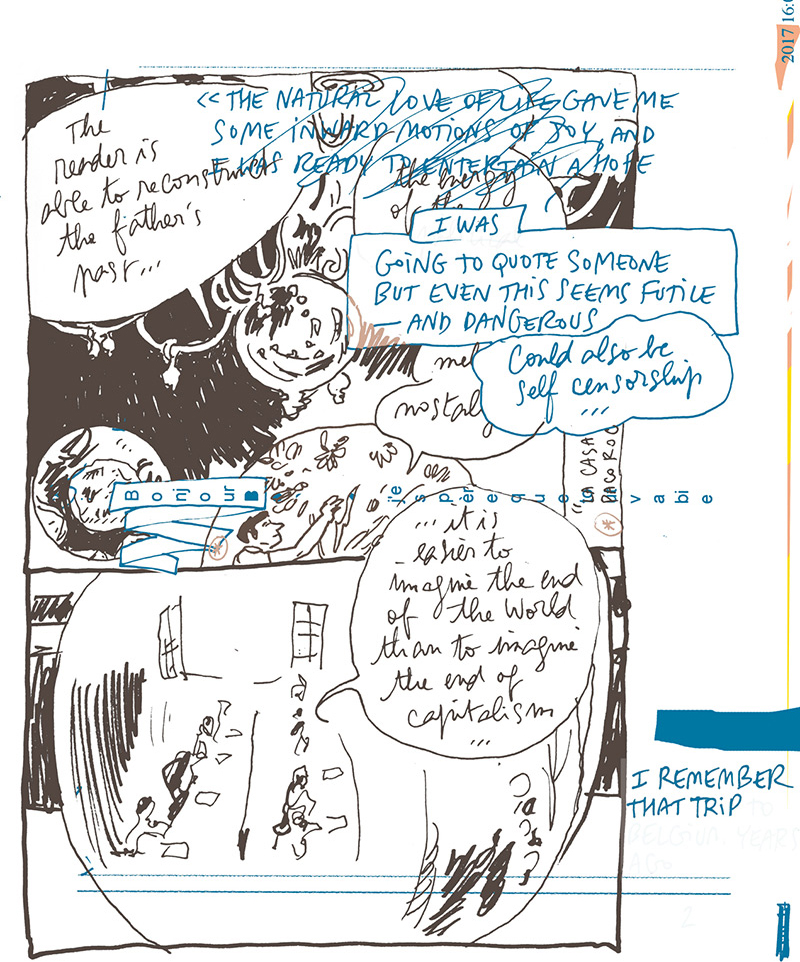 2017 16:0
<< THE NATURAL LOVE OF LIFE GAVE ME
SOME INWARD MOTIONS OF JOY, AND
I WAS READY TO ENTERTAIN A HOPE
The
reader is
able to reconstruct
the father's
past...
the energy
of the
I WAS
GOING TO QUOTE SOMEONE
BUT EVEN THIS SEEMS FUTILE
— AND DANGEROUS
Could also be
self censorship
...
mel
nostalg
"LA CASA
PACO ROC
*
Bonjour
je s p è r e q u e
v a b i e
*
...it is
easier to
imagine the end
of the World
than to imagine
the end of
capitalism
...
I REMEMBER
THAT TRIP
TO
BELGIUM. YEARS
AGO
2